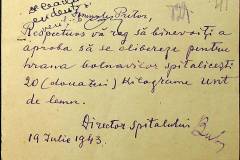 Domnule Pretor,
Respectuos vă rog să binevoiți a
aproba să se elibereze pentru
hrana bolnavilor spitalicești
20 (douăzeci) Kilograme unt
de lemn.
Directorul Spitalului
19 Iulie 1943.